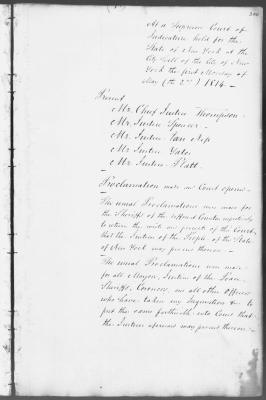 At a Supreme Court of
Judicature held for the
State of New York at the
City Hall of the City of New
York the first Monday of
May (the 2nd) 1814. —
Present
Mr. Chief Justice Thompson.
Mr. Justice Spencer.
Mr. Justice Van Ness
Mr. Justice Yates
Mr. Justice Platt.
Proclamation made and Court opened.
The usual Proclamations are made for
the Sheriffs of the different Counties
to return the writs and precepts of the Court,
that the Justices of the People of the State
of New York may proceed thereon. —
The usual Proclamations were made
for all Mayors, Justices of the Peace,
Sheriffs, Coroners, and all other Officers
who have taken any Inquisitions &c to
put the same forthwith into Court that
the Justices aforesaid may proceed thereon. —